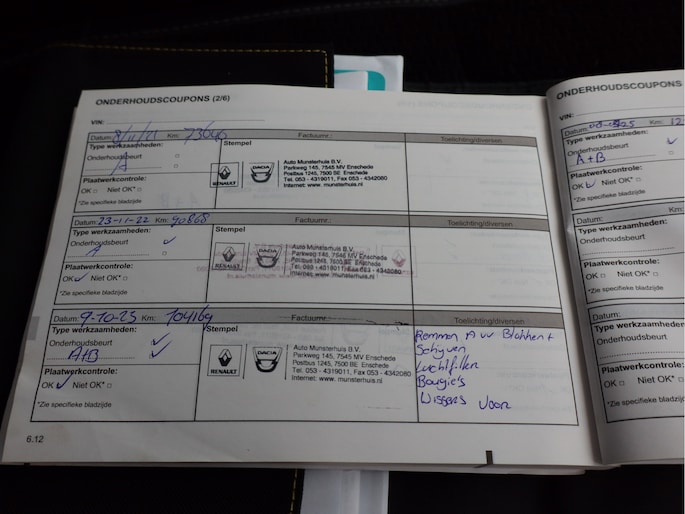 ONDERHOUDSCOUPONS (2/6)
VIN:
Datum: 8/11/21 Km: 73640 Factuurnr.: Toelichting/diversen
Type werkzaamheden: Stempel
Onderhoudsbeurt
A
Plaatwerkcontrole:
OK Niet OK*
*Zie specifieke bladzijde
RENAULT DACIA
Auto Munsterhuis B.V.
Parkweg 145, 7545 MV Enschede
Postbus 1245, 7500 BE Enschede
Tel. 053 - 4319011, Fax 053 - 4342080
Internet: www. munsterhuis.nl
Datum: 23-11-22 Km: 90868 Factuurnr.: Toelichting/diversen
Type werkzaamheden: Stempel
Onderhoudsbeurt ✓
A
Plaatwerkcontrole:
OK ✓ Niet OK*
*Zie specifieke bladzijde
RENAULT DACIA
Auto Munsterhuis B.V.
Parkweg 145, 7545 MV Enschede
Postbus 1245, 7500 BE Enschede
Internet: www. munsterhuis.nl
Datum: 9-10-23 Km: 104169 Factuurnr.: Toelichting/diversen
Type werkzaamheden: Stempel
Onderhoudsbeurt ✓
A+B ✓
Plaatwerkcontrole:
OK ✓ Niet OK*
*Zie specifieke bladzijde
RENAULT DACIA
Auto Munsterhuis B.V.
Parkweg 145, 7545 MV Enschede
Postbus 1245, 7500 BE Enschede
Tel. 053 - 4319011, Fax 053 - 4342080
Internet: www. munsterhuis.nl
Remmen A vv Blokken +
Schijven
Luchtfilter
Bougie's
Wissers Voor
6.12
ONDERHOUDSCOUPONS
VIN:
Datum: Km: 12
Type werkzaamheden:
Onderhoudsbeurt ✓
A+B
Plaatwerkcontrole:
OK ✓ Niet OK*
*Zie specifieke bladzijde
Datum: Km:
Type werkzaamheden:
Onderhoudsbeurt
Plaatwerkcontrole:
OK Niet OK*
*Zie specifieke bladzijde
Datum:
Type werkzaamheden
Onderhoudsbeurt
Plaatwerkcontrole:
OK Niet OK*
*Zie specifieke bladz